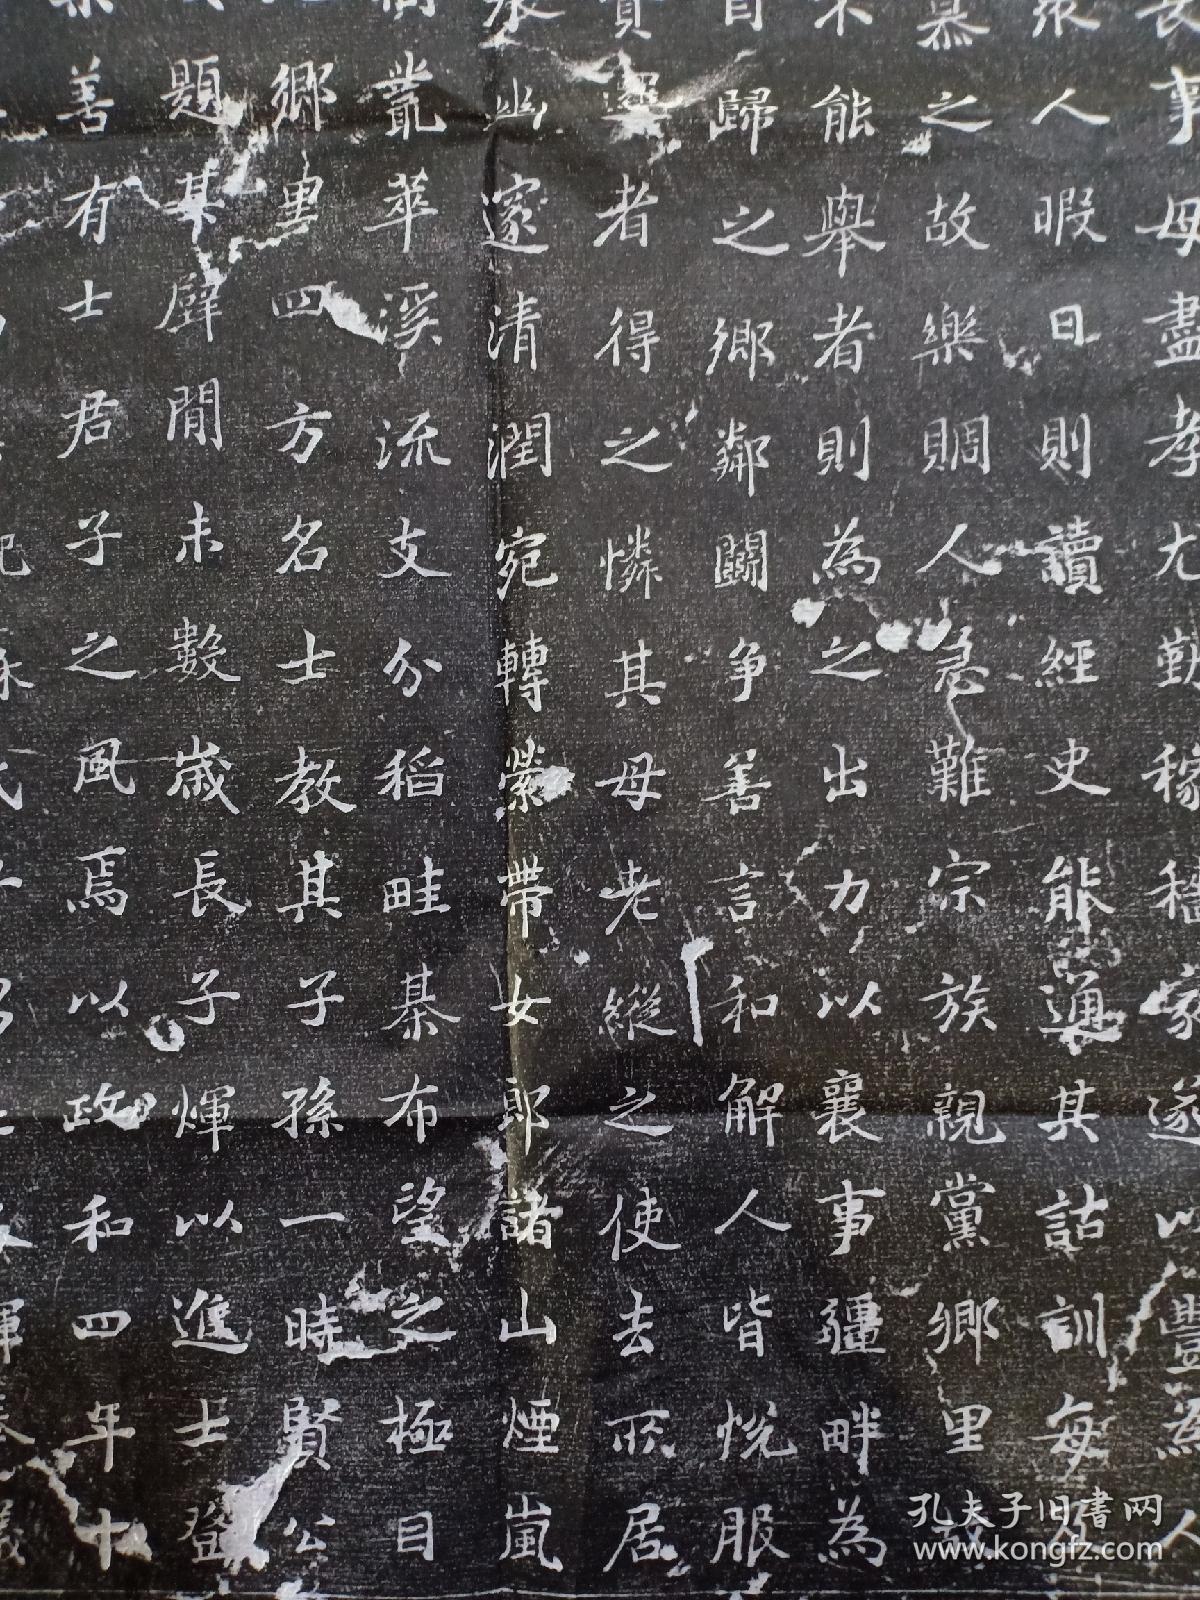 事母盡孝尤勤稼穡家遂以豐為人
衆人暇日則讀經史能通其詁訓每及
慕之故樂賙人急難宗族親黨鄉里故
不能舉者則為之出力以襄事疆畔為
自歸之鄉鄰鬭爭善言和解人皆悅服
者得之憐其母老縱之使去所居
幽邃清潤宛轉縈帶女郎諸山煙嵐
叢萃溪流支分稻畦棊布望之極目
鄉里四方名士教其子孫一時賢公
題其壁間未數歲長子煇以進士登
善有士君子之風焉以政和四年十
孔夫子旧书网
www.kongfz.com